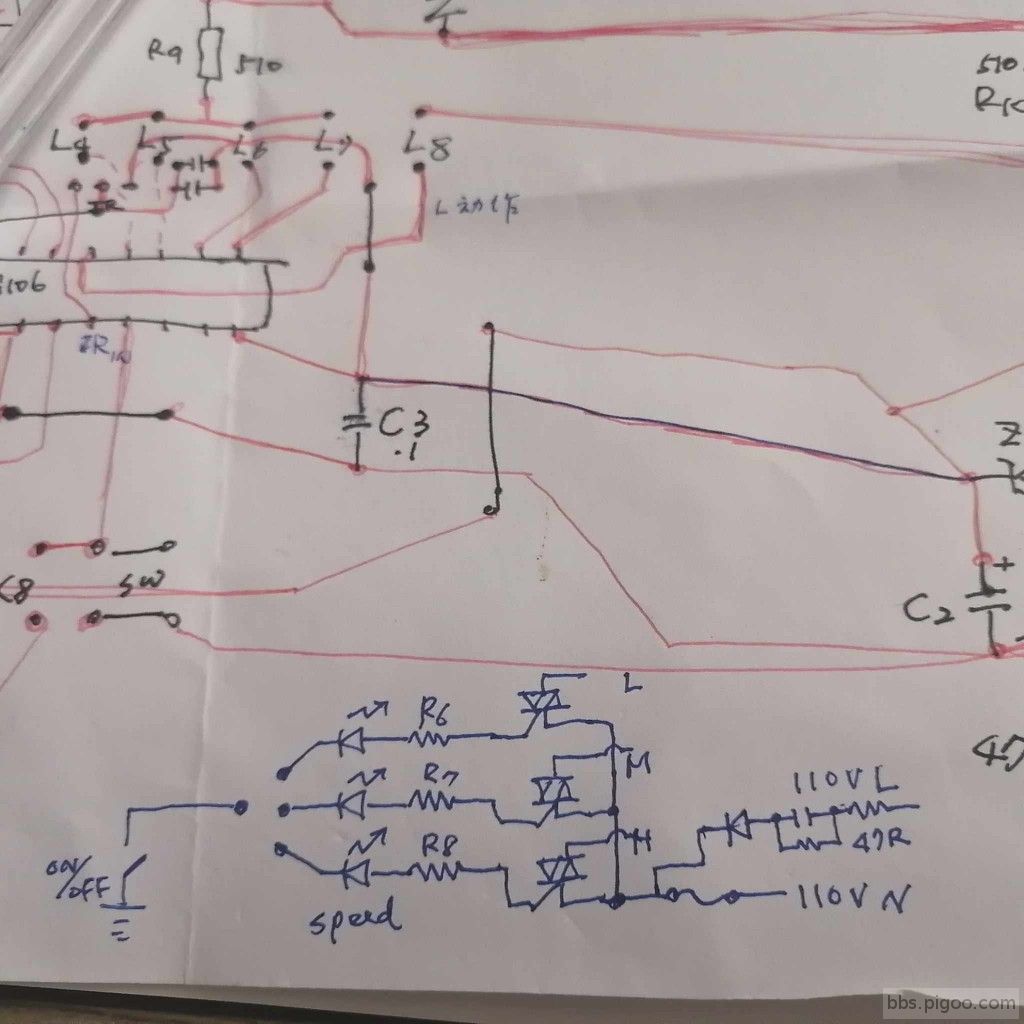 R9
510
510
L4
L5
L6
L7
L8
L动作
IR
106
IR IN
C3
.1
SW
C2
+
L
R6
M
R7
110V L
H
R8
47R
ON/OFF
110V N
speed
bbs.pigoo.com